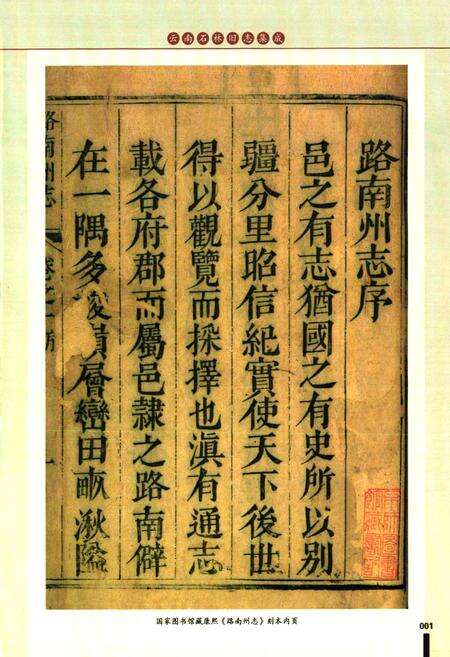 云南石林旧志集成
路南州志序
邑之有志猶國之有史所以别
疆分里昭信紀實使天下後世
得以觀覽而採擇也滇有通志
載各府郡而屬邑隷之路南僻
在一隅多嶺層巒田畝湫隘
路南州志
卷之一
一
国家图书馆藏康熙《路南州志》刻本内页
001